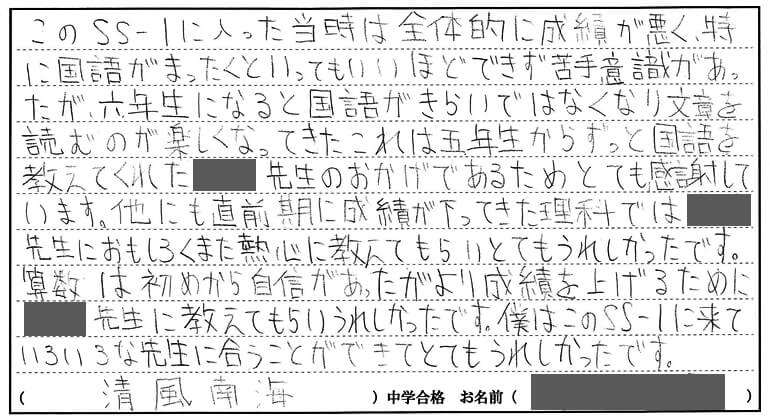 このSS-1に入った当時は全体的に成績が悪く、特
に国語がまったくといってもいいほどできず苦手意識があっ
たが、六年生になると国語がきらいではなくなり文章を
読むのが楽しくなってきたこれは五年生からずっと国語を
教えてくれた 先生のおかげであるためとても感謝して
います。他にも直前期に成績が下ってきた理科では
先生におもしろくまた熱心に教えてもらいとてもうれしかったです。
算数は初めから自信があったがより成績を上げるために
先生に教えてもらいうれしかったです。僕はこのSS-1に来て
いろいろな先生に合うことができてとてもうれしかったです。
( 清風南海 ) 中学合格 お名前 ( )